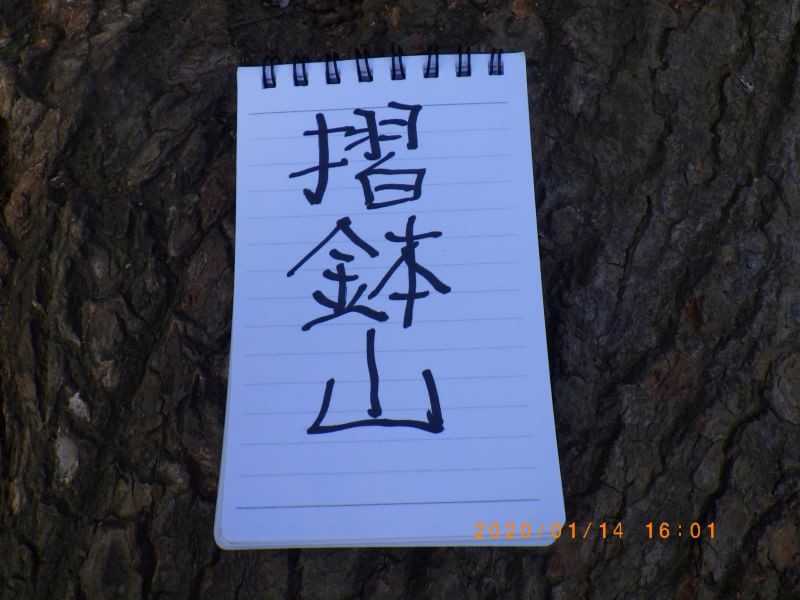 摺鉢山
2020/01/14 16:01